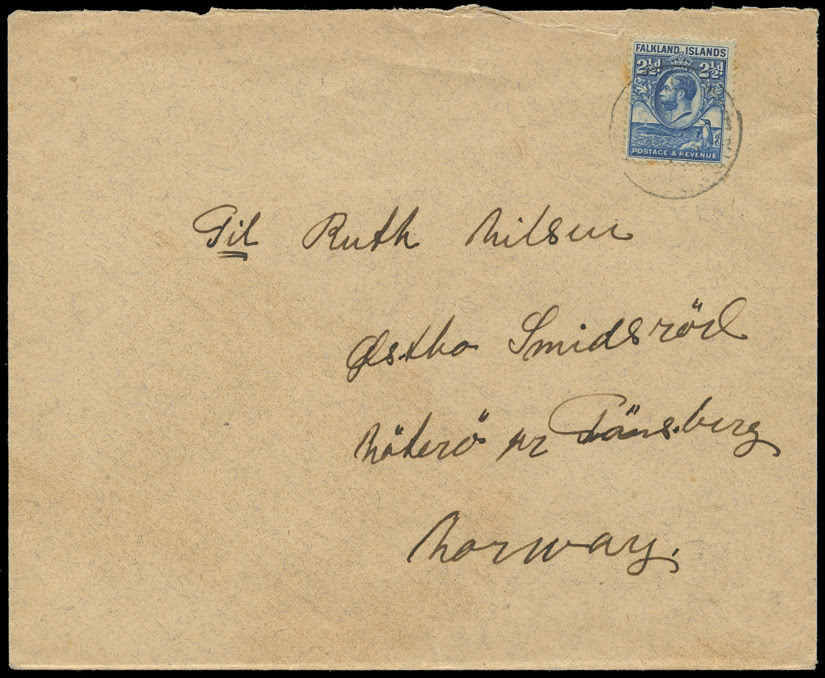 FALKLAND ISLANDS
2½d 2½d
POSTAGE & REVENUE
Til Ruth Nilsen
Østbo Smidsröd
Nöterö pr Tönsberg
Norway.